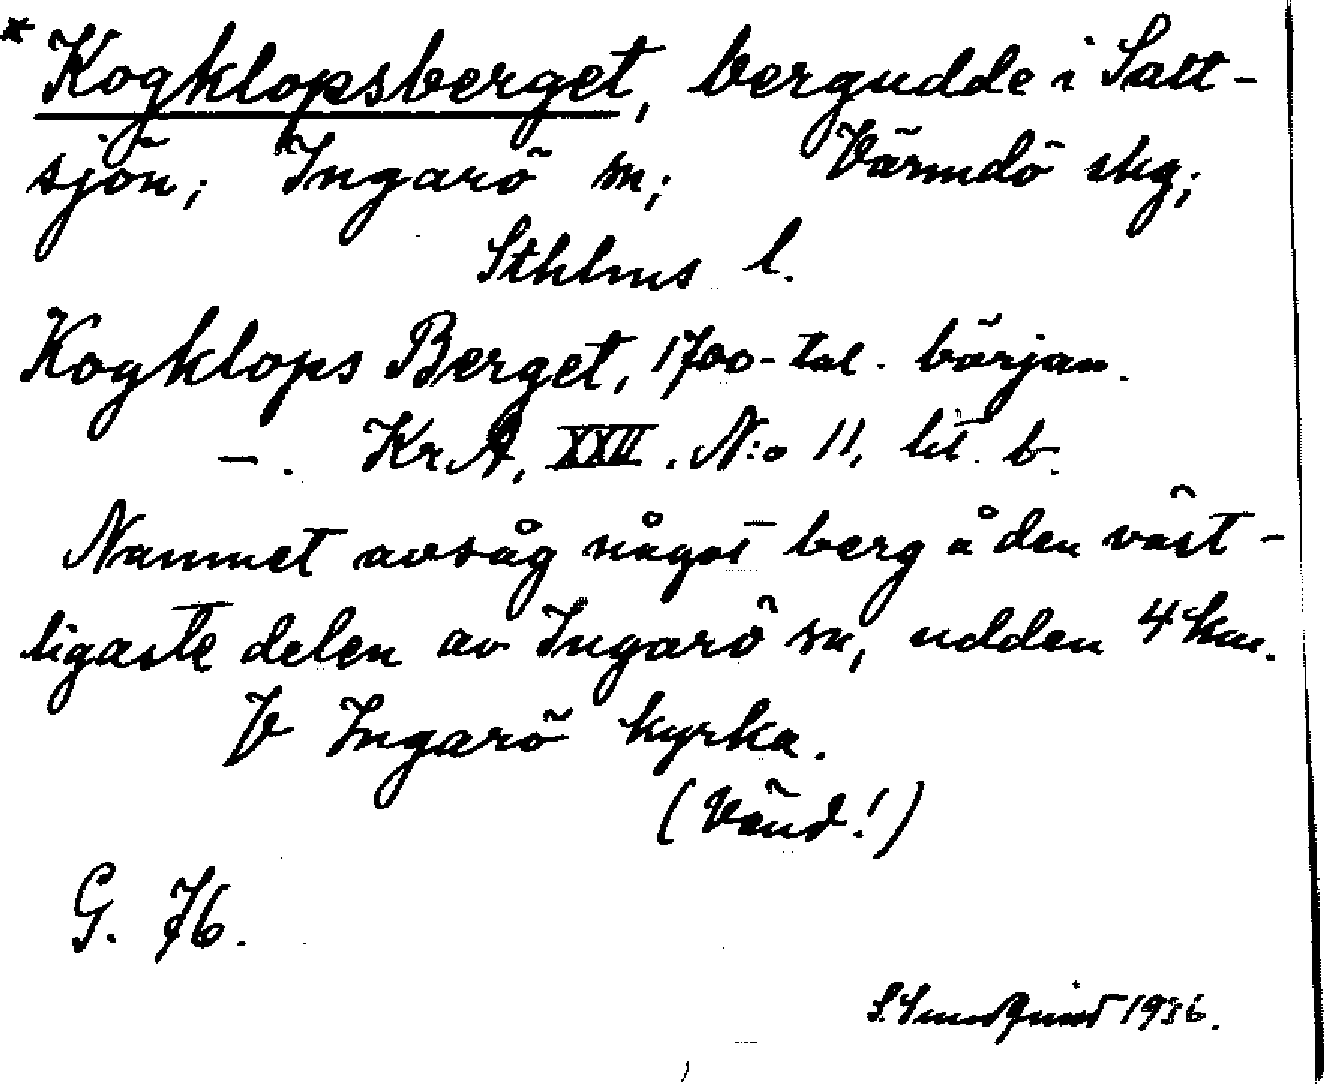 * Kogklopsberget, bergudde i Salt-
sjön; Ingarö sn; Värmdö skg;
Sthlms l.
Kogklops Berget, 1700-tal. början.
–. KrA, XXII. N:o 11, lit. b.
Namnet avsåg något berg å den väst-
ligaste delen av Ingarö sn, udden 4 km.
V Ingarö kyrka.
(Vänd!)
G. 76.
1936.